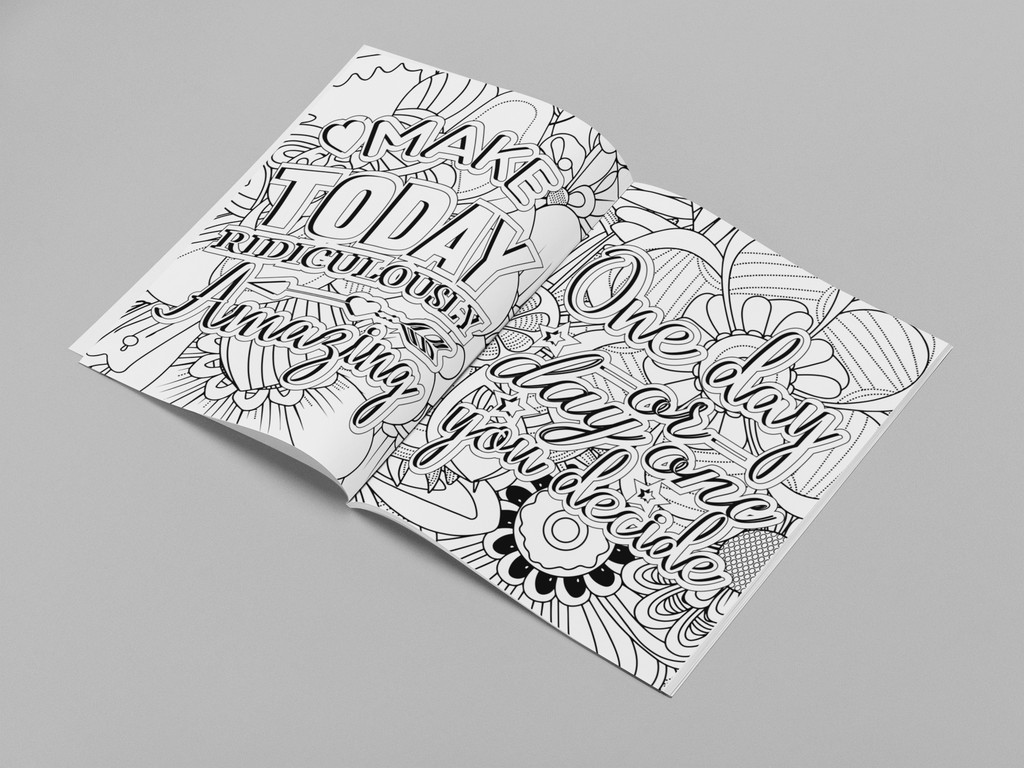 MAKE
TODAY
RIDICULOUSLY
Amazing
One day
or
day one
you decide